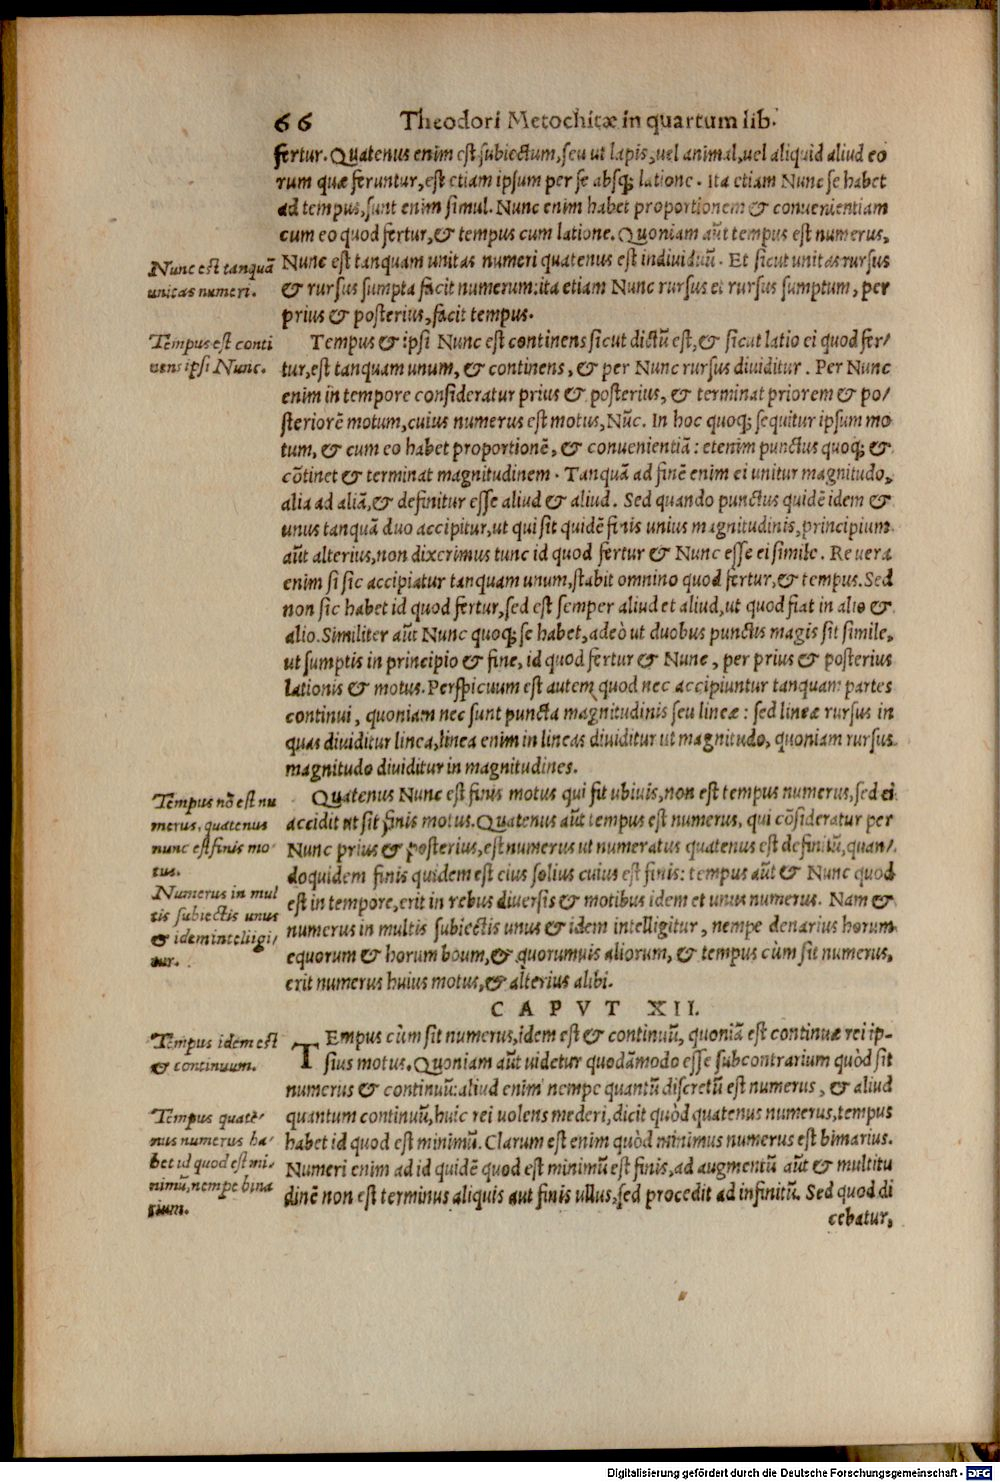 66 Theodori Metochitæ in quartum lib.
fertur. Quatenus enim est subiectum, seu ut lapis, uel animal, uel aliquid aliud eo
rum quæ feruntur, est etiam ipsum per se absq; latione. Ita etiam Nunc se habet
ad tempus, sunt enim simul. Nunc enim habet proportionem & conuenientiam
cum eo quod fertur, & tempus cum latione. Quoniam aūt tempus est numerus,
Nunc est tanquam unitas numeri quatenus est indiuiduū. Et sicut unitas rursus
& rursus sumpta facit numerum: ita etiam Nunc rursus et rursus sumptum, per
prius & posterius, facit tempus.
Nunc est tanquā
unitas numeri.
Tempus & ipsi Nunc est continens sicut dictū est, & sicut latio ei quod fer/
tur, est tanquam unum, & continens, & per Nunc rursus diuiditur. Per Nunc
enim in tempore consideratur prius & posterius, & terminat priorem & po/
steriorē motum, cuius numerus est motus, Nūc. In hoc quoq; sequitur ipsum mo
tum, & cum eo habet proportionē, & conuenientiā: etenim punctus quoq; &
cōtinet & terminat magnitudinem. Tanquā ad finē enim ei unitur magnitudo,
alia ad aliā, & definitur esse aliud & aliud. Sed quando punctus quidē idem &
unus tanquā duo accipitur, ut qui sit quidē finis unius magnitudinis, principium
aūt alterius, non dixerimus tunc id quod fertur & Nunc esse ei simile. Reuera
enim si sic accipiatur tanquam unum, stabit omnino quod fertur, & tempus. Sed
non sic habet id quod fertur, sed est semper aliud et aliud, ut quod fiat in alio &
alio. Similiter aūt Nunc quoq; se habet, adeò ut duobus punctus magis sit simile,
ut sumptis in principio & fine, id quod fertur & Nunc, per prius & posterius
lationis & motus. Perspicuum est autem quod nec accipiuntur tanquam partes
continui, quoniam nec sunt puncta magnitudinis seu lineæ: sed lineæ rursus in
quas diuiditur linea, linea enim in lineas diuiditur ut magnitudo, quoniam rursus
magnitudo diuiditur in magnitudines.
Tempus est conti
nens ipsi Nunc.
Quatenus Nunc est finis motus qui fit ubiuis, non est tempus numerus, sed ei
accidit ut sit finis motus. Quatenus aūt tempus est numerus, qui cōsideratur per
Nunc prius & posterius, est numerus ut numeratus quatenus est definitū, quan/
doquidem finis quidem est eius solius cuius est finis: tempus aūt & Nunc quod
est in tempore, erit in rebus diuersis & motibus idem et unus numerus. Nam &
numerus in multis subiectis unus & idem intelligitur, nempe denarius horum
equorum & horum boum, & quorumuis aliorum, & tempus cùm sit numerus,
erit numerus huius motus, & alterius alibi.
Tempus nō est nu
merus, quatenus
nunc est finis mo
tus.
Numerus in mul
tis subiectis unus
& idem intelligi/
tur.
CAPVT XII.
TEmpus cùm sit numerus, idem est & continuū, quoniā est continuæ rei ip-
sius motus. Quoniam aūt uidetur quodāmodo esse subcontrarium quòd sit
numerus & continuū: aliud enim nempe quantū discretū est numerus, & aliud
quantum continuū, huic rei uolens mederi, dicit quòd quatenus numerus, tempus
habet id quod est minimū. Clarum est enim quòd minimus numerus est binarius.
Numeri enim ad id quidē quod est minimū est finis, ad augmentū aūt & multitu
dinē non est terminus aliquis aut finis ullus, sed procedit ad infinitū. Sed quod di
cebatur,
Tempus idem est
& continuum.
Tempus quate/
nus numerus ha/
bet id quod est mi/
nimū, nempe bina
rium.
Digitalisierung gefördert durch die Deutsche Forschungsgemeinschaft - DFG